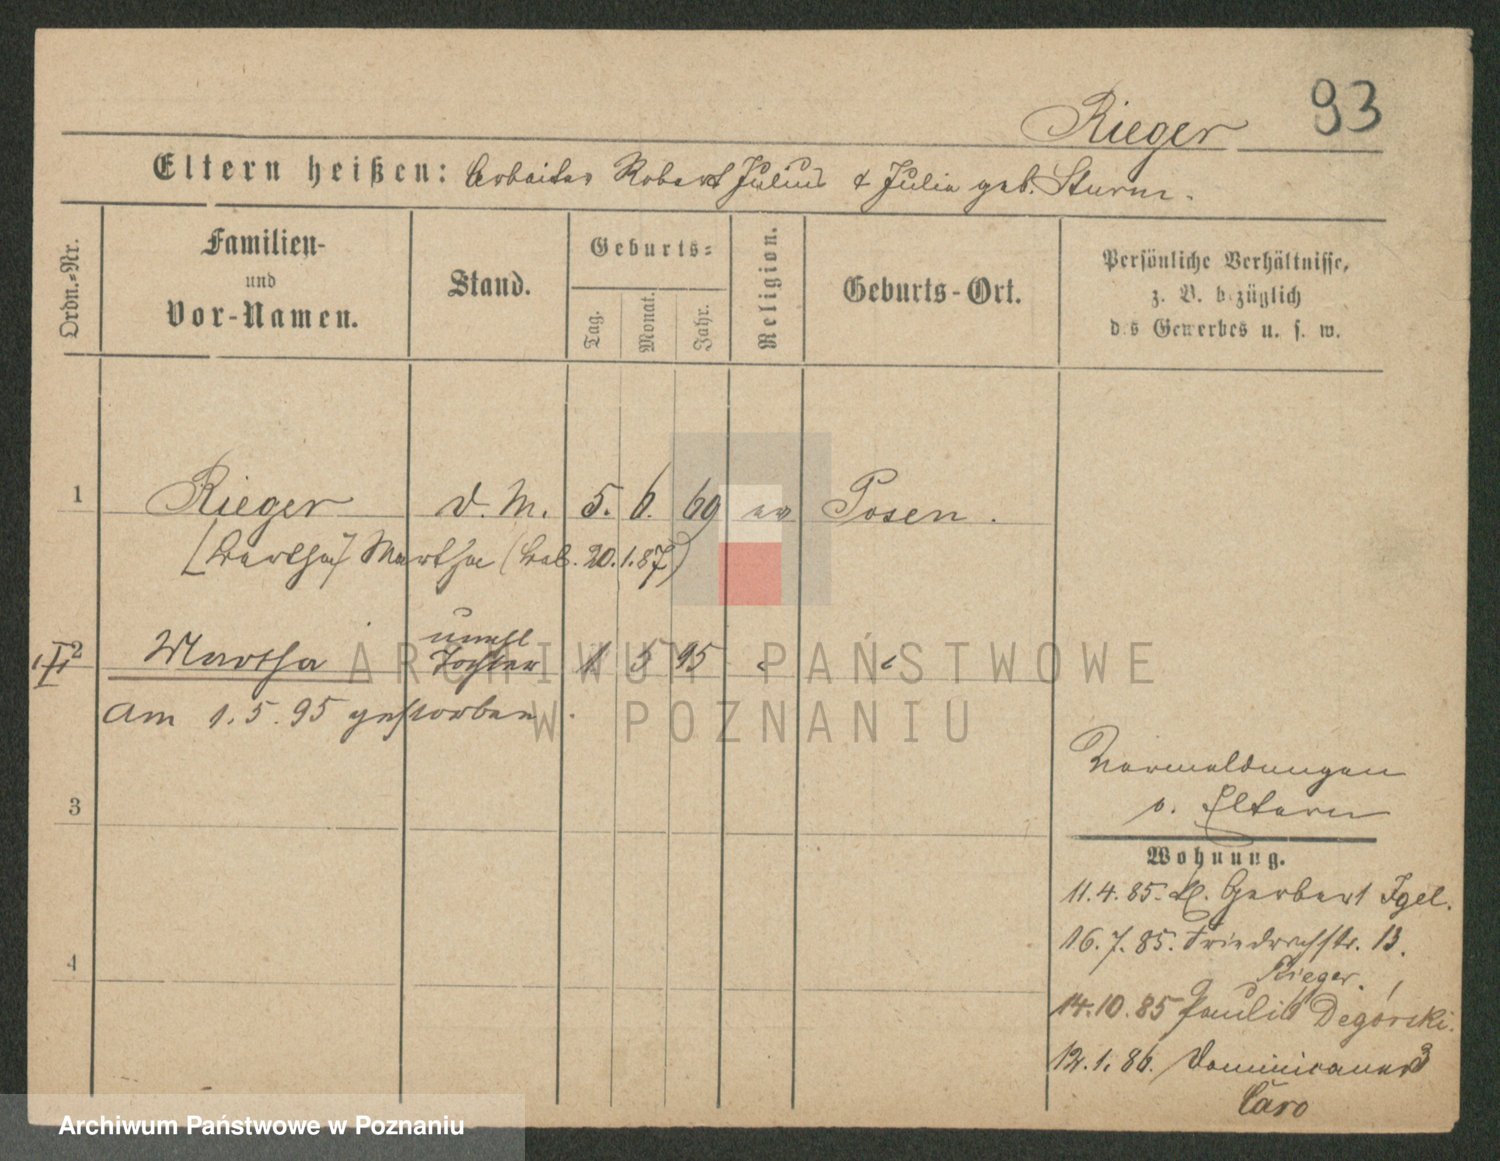 93
Rieger
Eltern heißen: Arbeiter Robert Julius & Julia geb. Sturm.
Ordn.-Nr.
Familien-
und
Vor-Namen.
Stand.
Geburts-
Tag.
Monat.
Jahr.
Religion.
Geburts-Ort.
Persönliche Verhältnisse,
z. B. bezüglich
des Gewerbes u. s. w.
1 Rieger d. M. 5. 6. 69 ev Posen.
[Bertha] Martha (20.1.87)
unehl
2 Martha Tochter 1 5 95 " "
Am 1.5.95 gestorben.
ARCHIWUM PAŃSTWOWE
W POZNANIU
Vermeldungen
s. Eltern
3
Wohnung.
11.4.85. Gerbert Igel.
16.7.85. Friedrichstr. 13.
Rieger.
4
14.10.85 Degórski.
12.1.86. Dominicaner 3
Caro
Archiwum Państwowe w Poznaniu